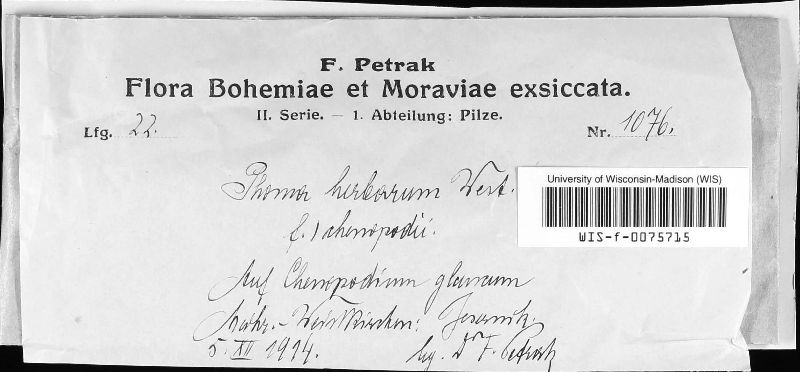 F. Petrak
Flora Bohemiae et Moraviae exsiccata.
II. Serie. — 1. Abteilung: Pilze.
Lfg. 22.
Nr. 1076.
Phoma herbarum West.
f. chenopodii.
University of Wisconsin-Madison (WIS)
WIS-f-0075715
Auf Chenopodium glaucum
Mähr.-Weisskirchen: Jesernik.
5. XII 1914.
leg. Dr F. Petrak